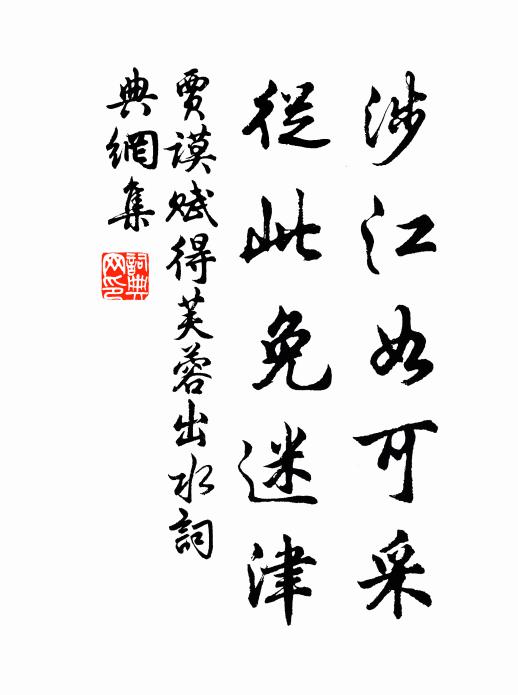 涉江如可采
從此免迷津
賈謨賦得芙蓉出水詞
典網集
詞典
网印